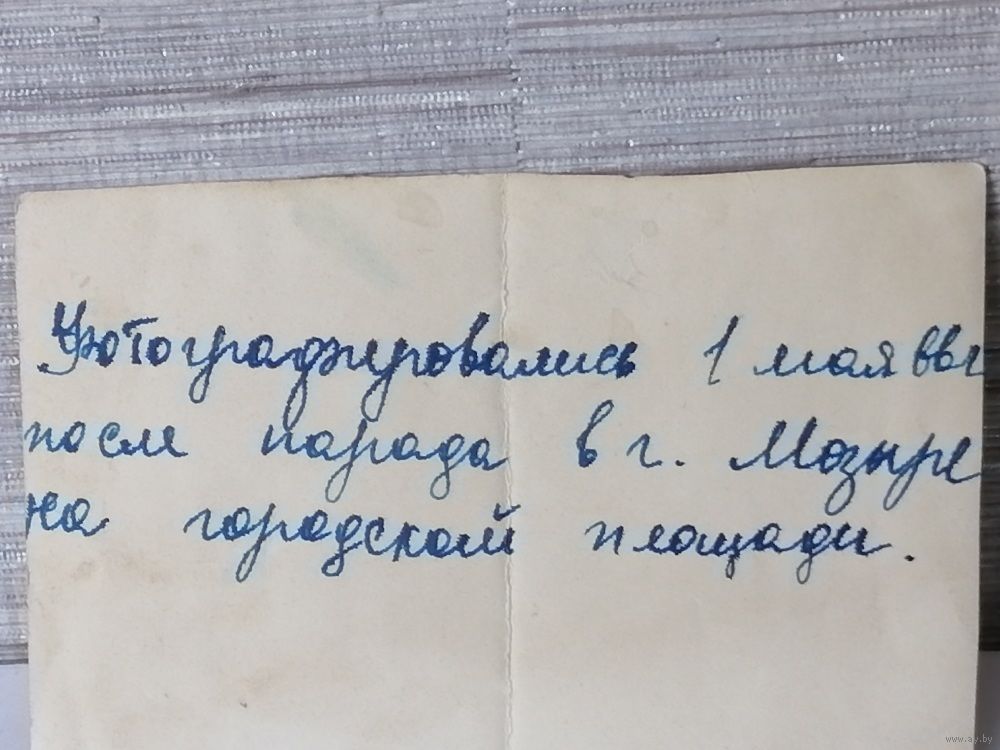 Фотографировались 1 мая
после парада в г. Мозыре
на городской площади.
www.ay.by